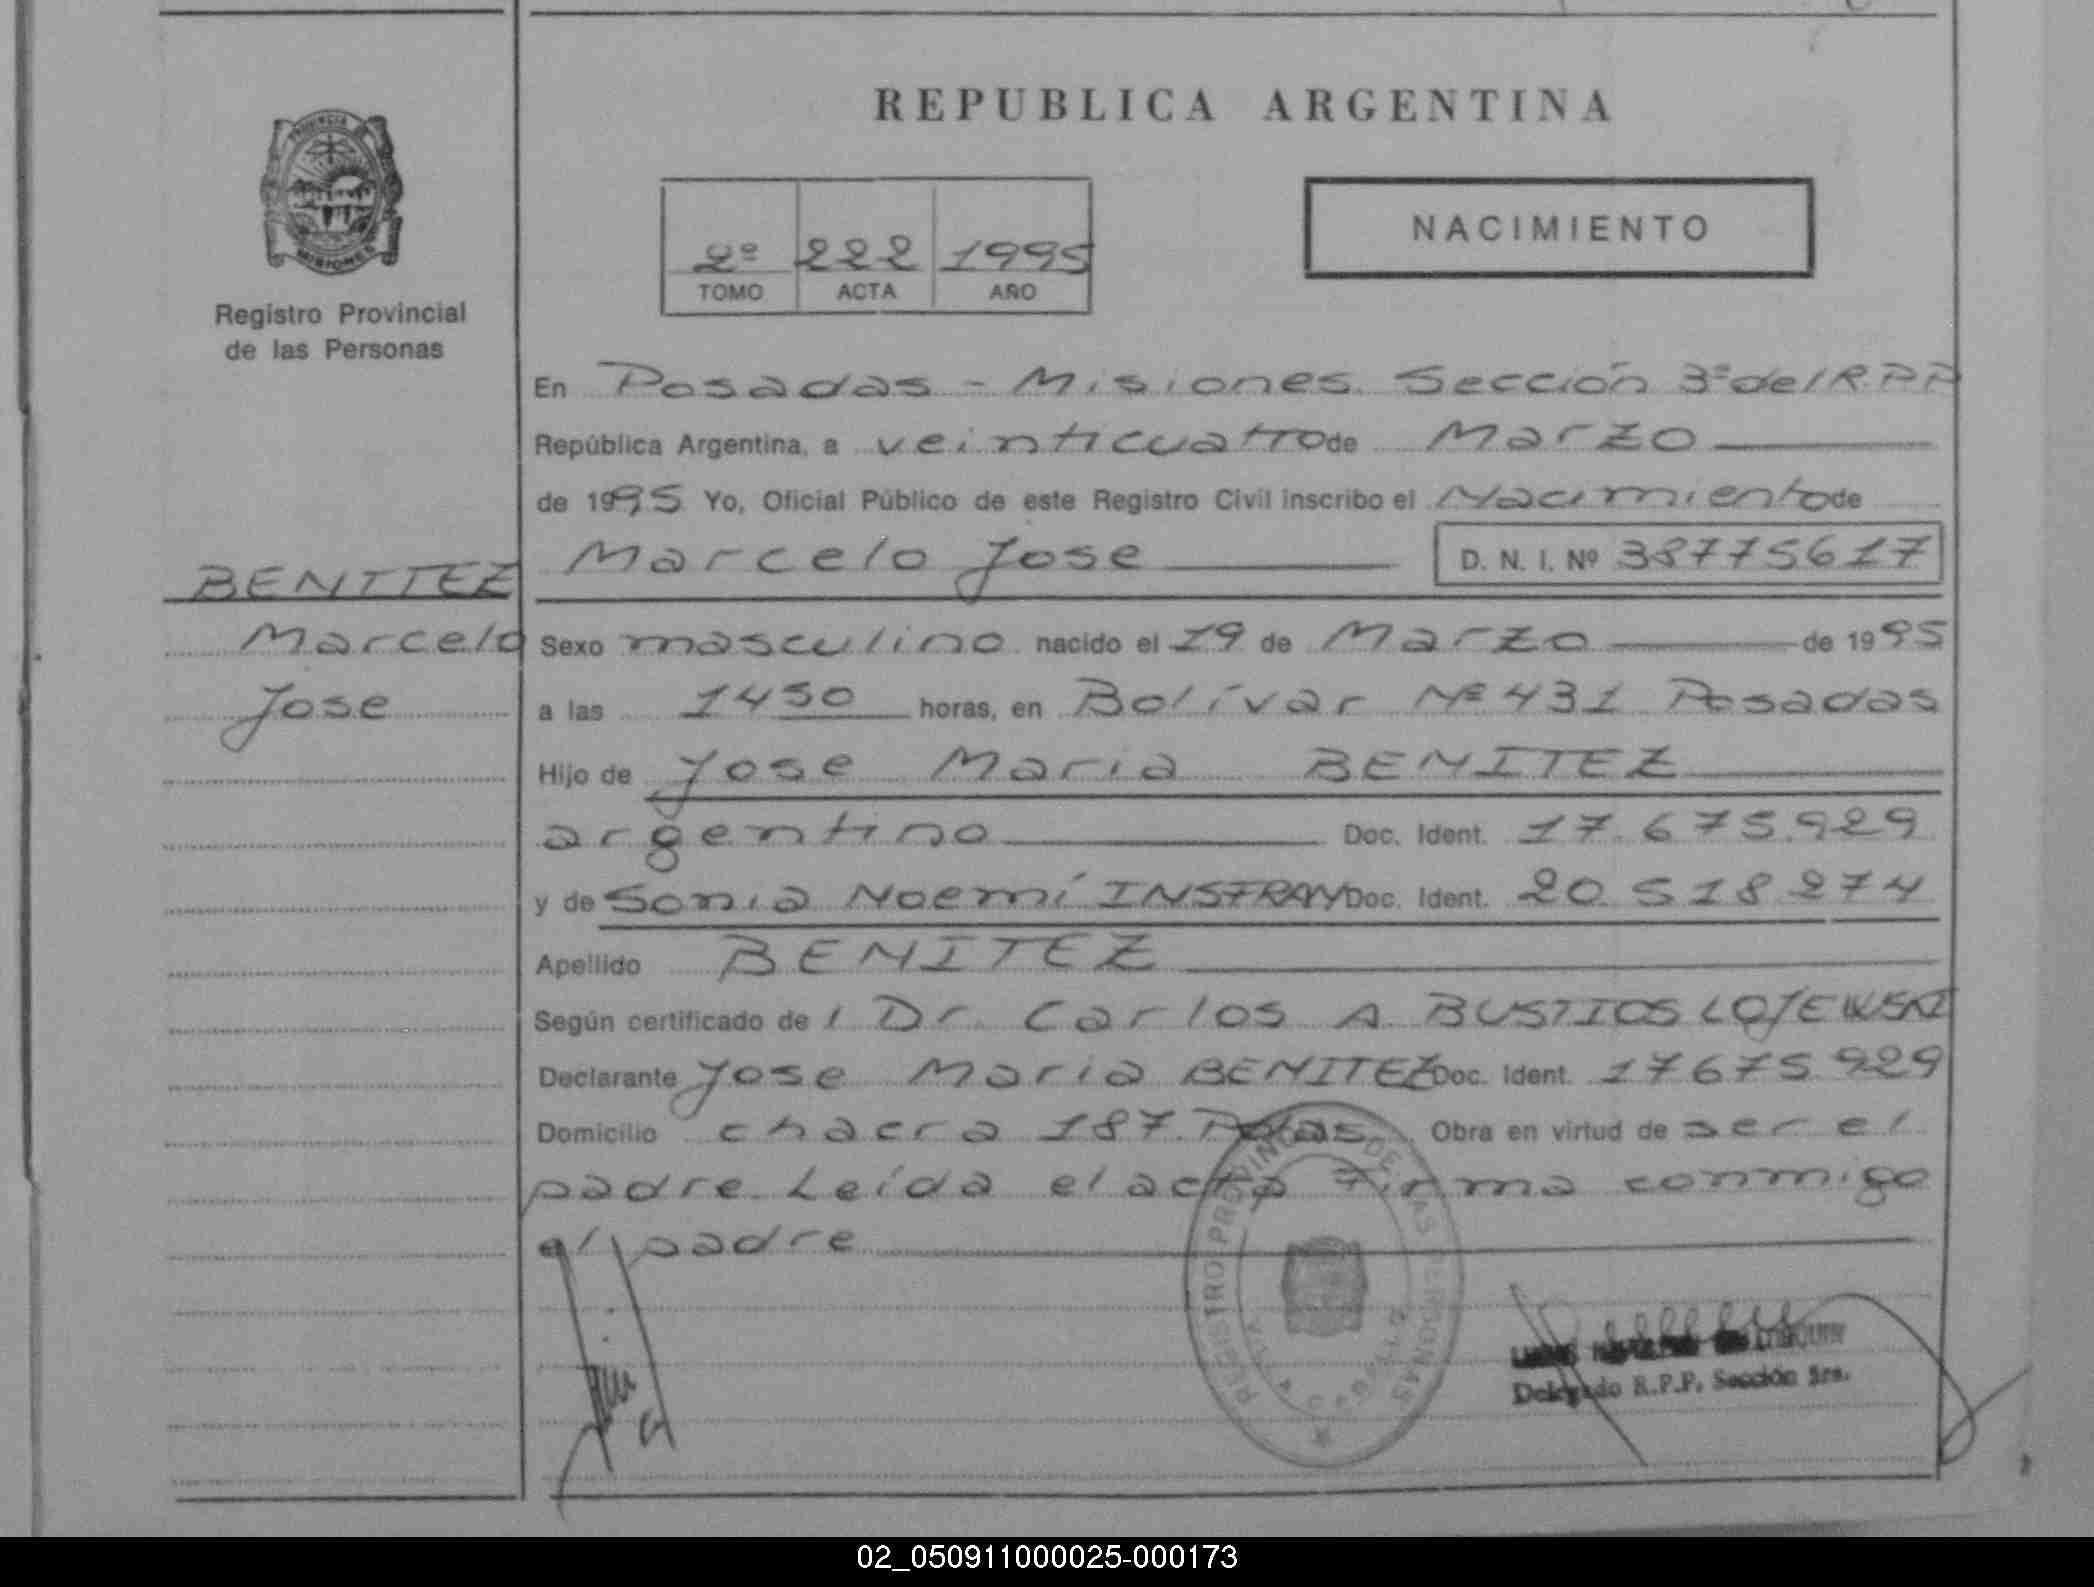 REPUBLICA ARGENTINA
PROVINCIA
MISIONES
Registro Provincial
de las Personas
2º 222 1995
TOMO ACTA AÑO
NACIMIENTO
En Posadas - Misiones. Sección 3ª del R.P.P
República Argentina, a veinticuatro de Marzo
de 1995 Yo, Oficial Público de este Registro Civil inscribo el Nacimiento de
Marcelo Jose D. N. I. Nº 38775617
BENITEZ
Marcelo
Jose
Sexo masculino nacido el 19 de Marzo de 1995
a las 1450 horas, en Bolívar Nº 431 Posadas
Hijo de Jose Maria BENITEZ
argentino Doc. Ident. 17.675.929
y de Sonia Noemí INSFRAN Doc. Ident. 20.518.274
Apellido BENITEZ
Según certificado de l Dr. Carlos A. BUSTIOS LOJEWSKI
Declarante Jose Maria BENITEZ Doc. Ident. 17675.929
Domicilio chacra 187. Pdas. Obra en virtud de ser el
padre. Leída el acta firma conmigo
el padre
REGISTRO PROVINCIAL DE LAS PERSONAS
Delegado R.P.P. Sección 3ra.
02_050911000025-000173